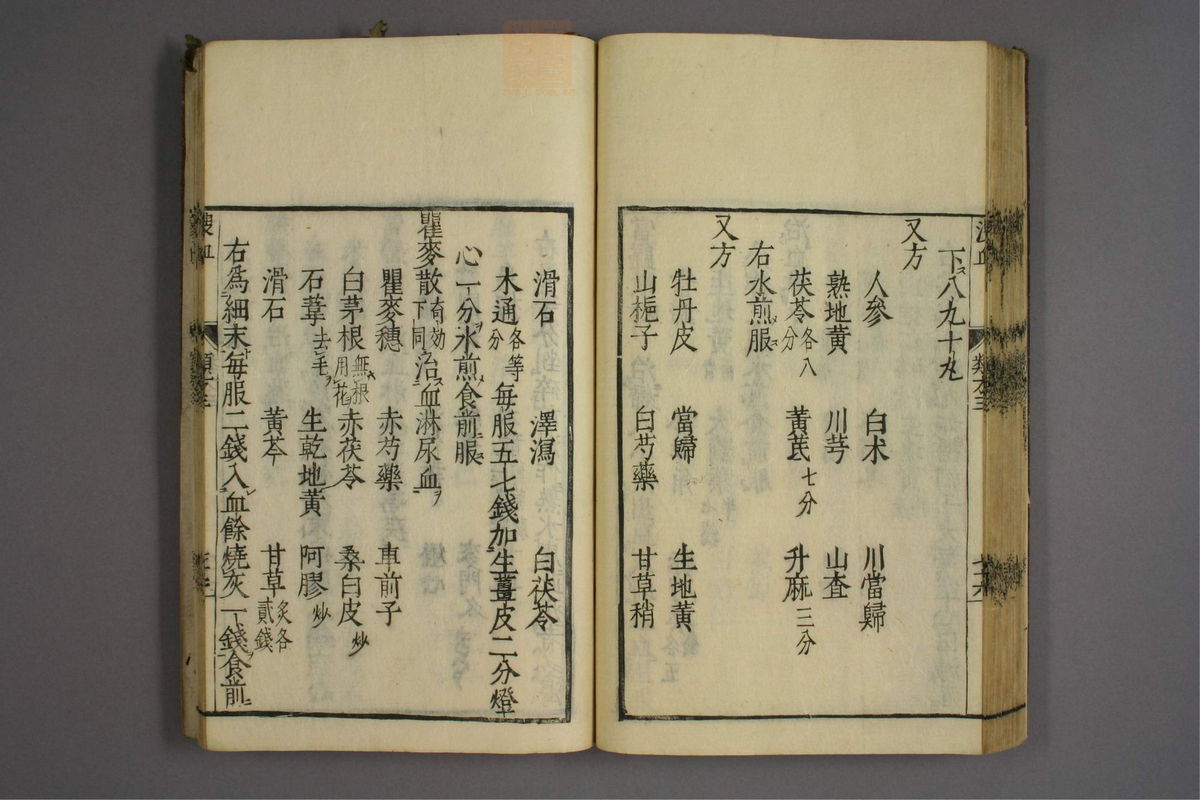 下八九十丸
又方
人參 白朮 川當歸
熟地黃 川芎 山査
茯苓各八分 黃芪七分 升麻三分
右水煎服
又方
牡丹皮 當歸 生地黃
山梔子 白芍藥 甘草稍
滑石 澤瀉 白茯苓
木通各等分 每服五七錢加生薑皮二分燈
心一分水煎食前服
瞿麥散奇効下同 治血淋尿血
瞿麥穗 赤芍藥 車前子
白茅根無根用花 赤茯苓 桑白皮炒
石葦去毛 生乾地黃 阿膠炒
滑石 黃芩 甘草炙各貳錢
右爲細末每服二錢入血餘燒灰一錢食前